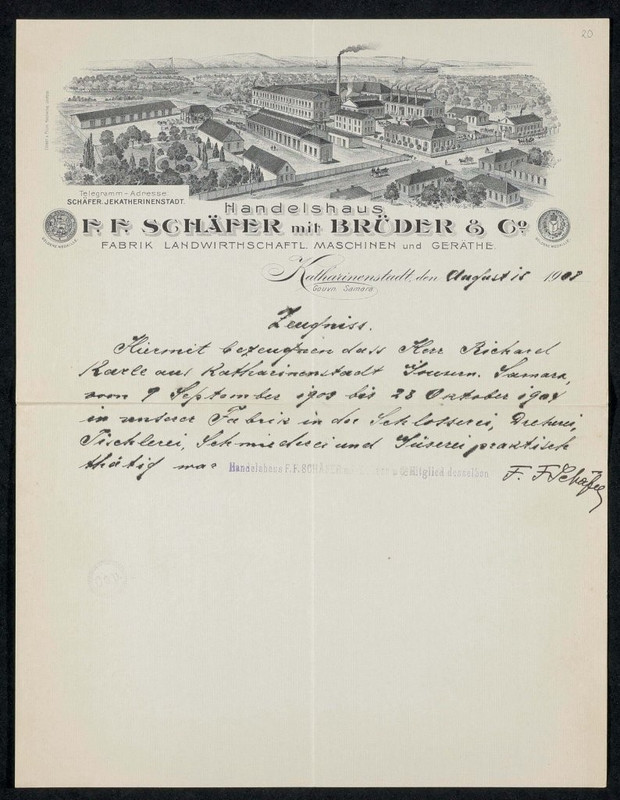 20
Telegramm-Adresse:
SCHÄFER, JEKATHERINENSTADT.
Handelshaus
F. F. SCHÄFER mit BRÜDER & Co
FABRIK LANDWIRTHSCHAFTL. MASCHINEN und GERÄTHE.
Katharinenstadt, den August 18 1908
Gouvn. Samara
Zeugniss.
Hiermit bezeugnen dass Herr Richard
Karle aus Katharinenstadt Gouvrn. Samara,
vom 9 September 1903 bis 28 Oktober 1904
in unserer Fabrik in der Schlosserei, Dreherei,
Tischlerei, Schmiederei und Güserei praktisch
thätig war
Handelshaus F. F. SCHÄFER Mitglied desselben
F. F. Schäfer